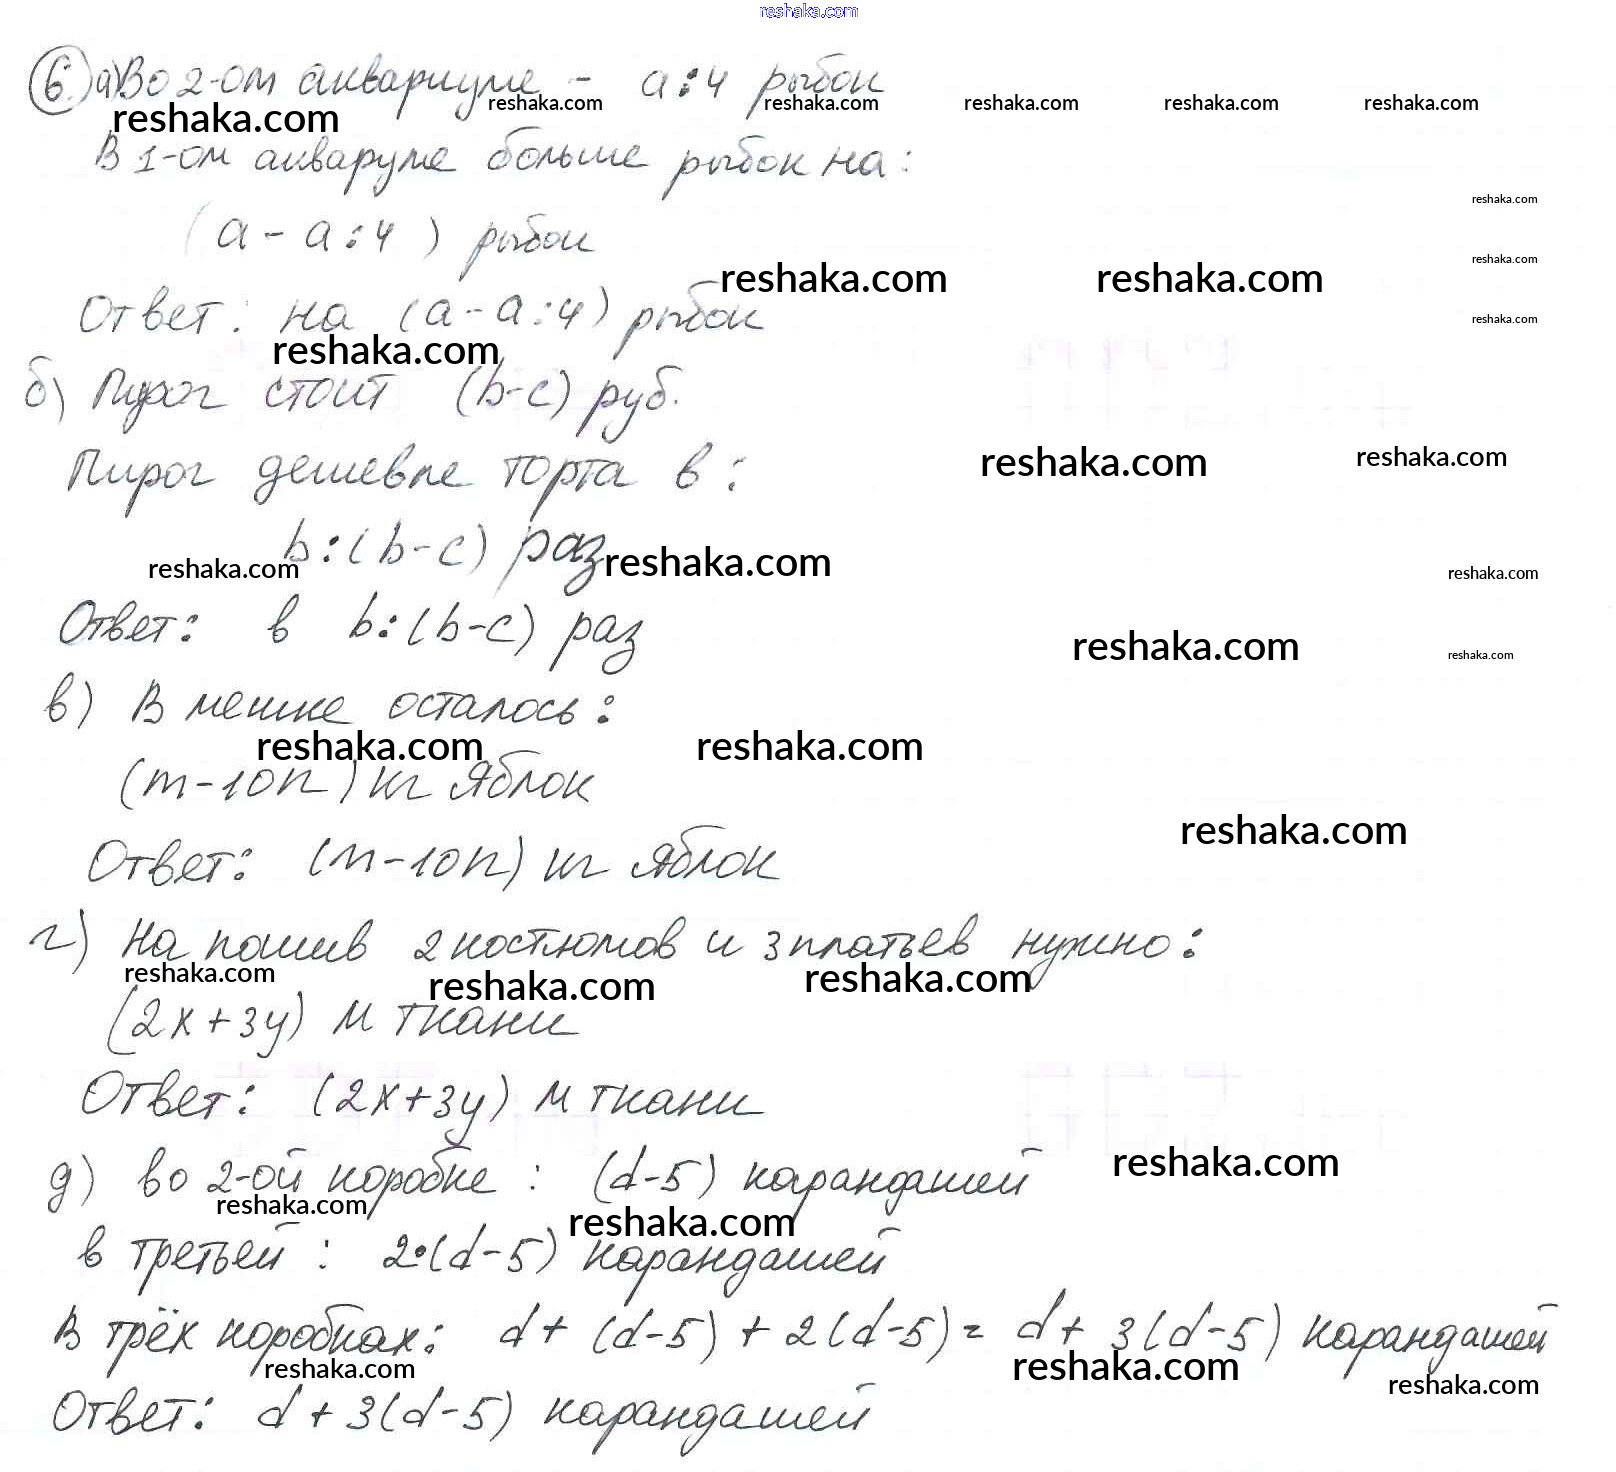 reshaka.com
6. а) Во 2-ом аквариуме - a:4 рыбок
reshaka.com reshaka.com reshaka.com reshaka.com reshaka.com reshaka.com
В 1-ом акваруме больше рыбок на:
reshaka.com
(a - a:4) рыбок
reshaka.com
reshaka.com reshaka.com
Ответ: на (a - a:4) рыбок
reshaka.com
reshaka.com
б) Пирог стоит (b-c) руб.
Пирог дешевле торта в:
reshaka.com reshaka.com
b:(b-c) раз
reshaka.com reshaka.com reshaka.com
Ответ: в b:(b-c) раз
reshaka.com reshaka.com
в) В мешке осталось:
reshaka.com reshaka.com
(m-10n) кг яблок
reshaka.com
Ответ: (m-10n) кг яблок
г) На пошив 2 костюмов и 3 платьев нужно:
reshaka.com reshaka.com reshaka.com
(2x+3y) м ткани
Ответ: (2x+3y) м ткани
д) во 2-ой коробке: (d-5) карандашей
reshaka.com
reshaka.com reshaka.com
в третьей: 2•(d-5) карандашей
В трёх коробках: d+ (d-5) + 2(d-5) = d+ 3(d-5) карандашей
reshaka.com reshaka.com reshaka.com
Ответ: d + 3(d-5) карандашей